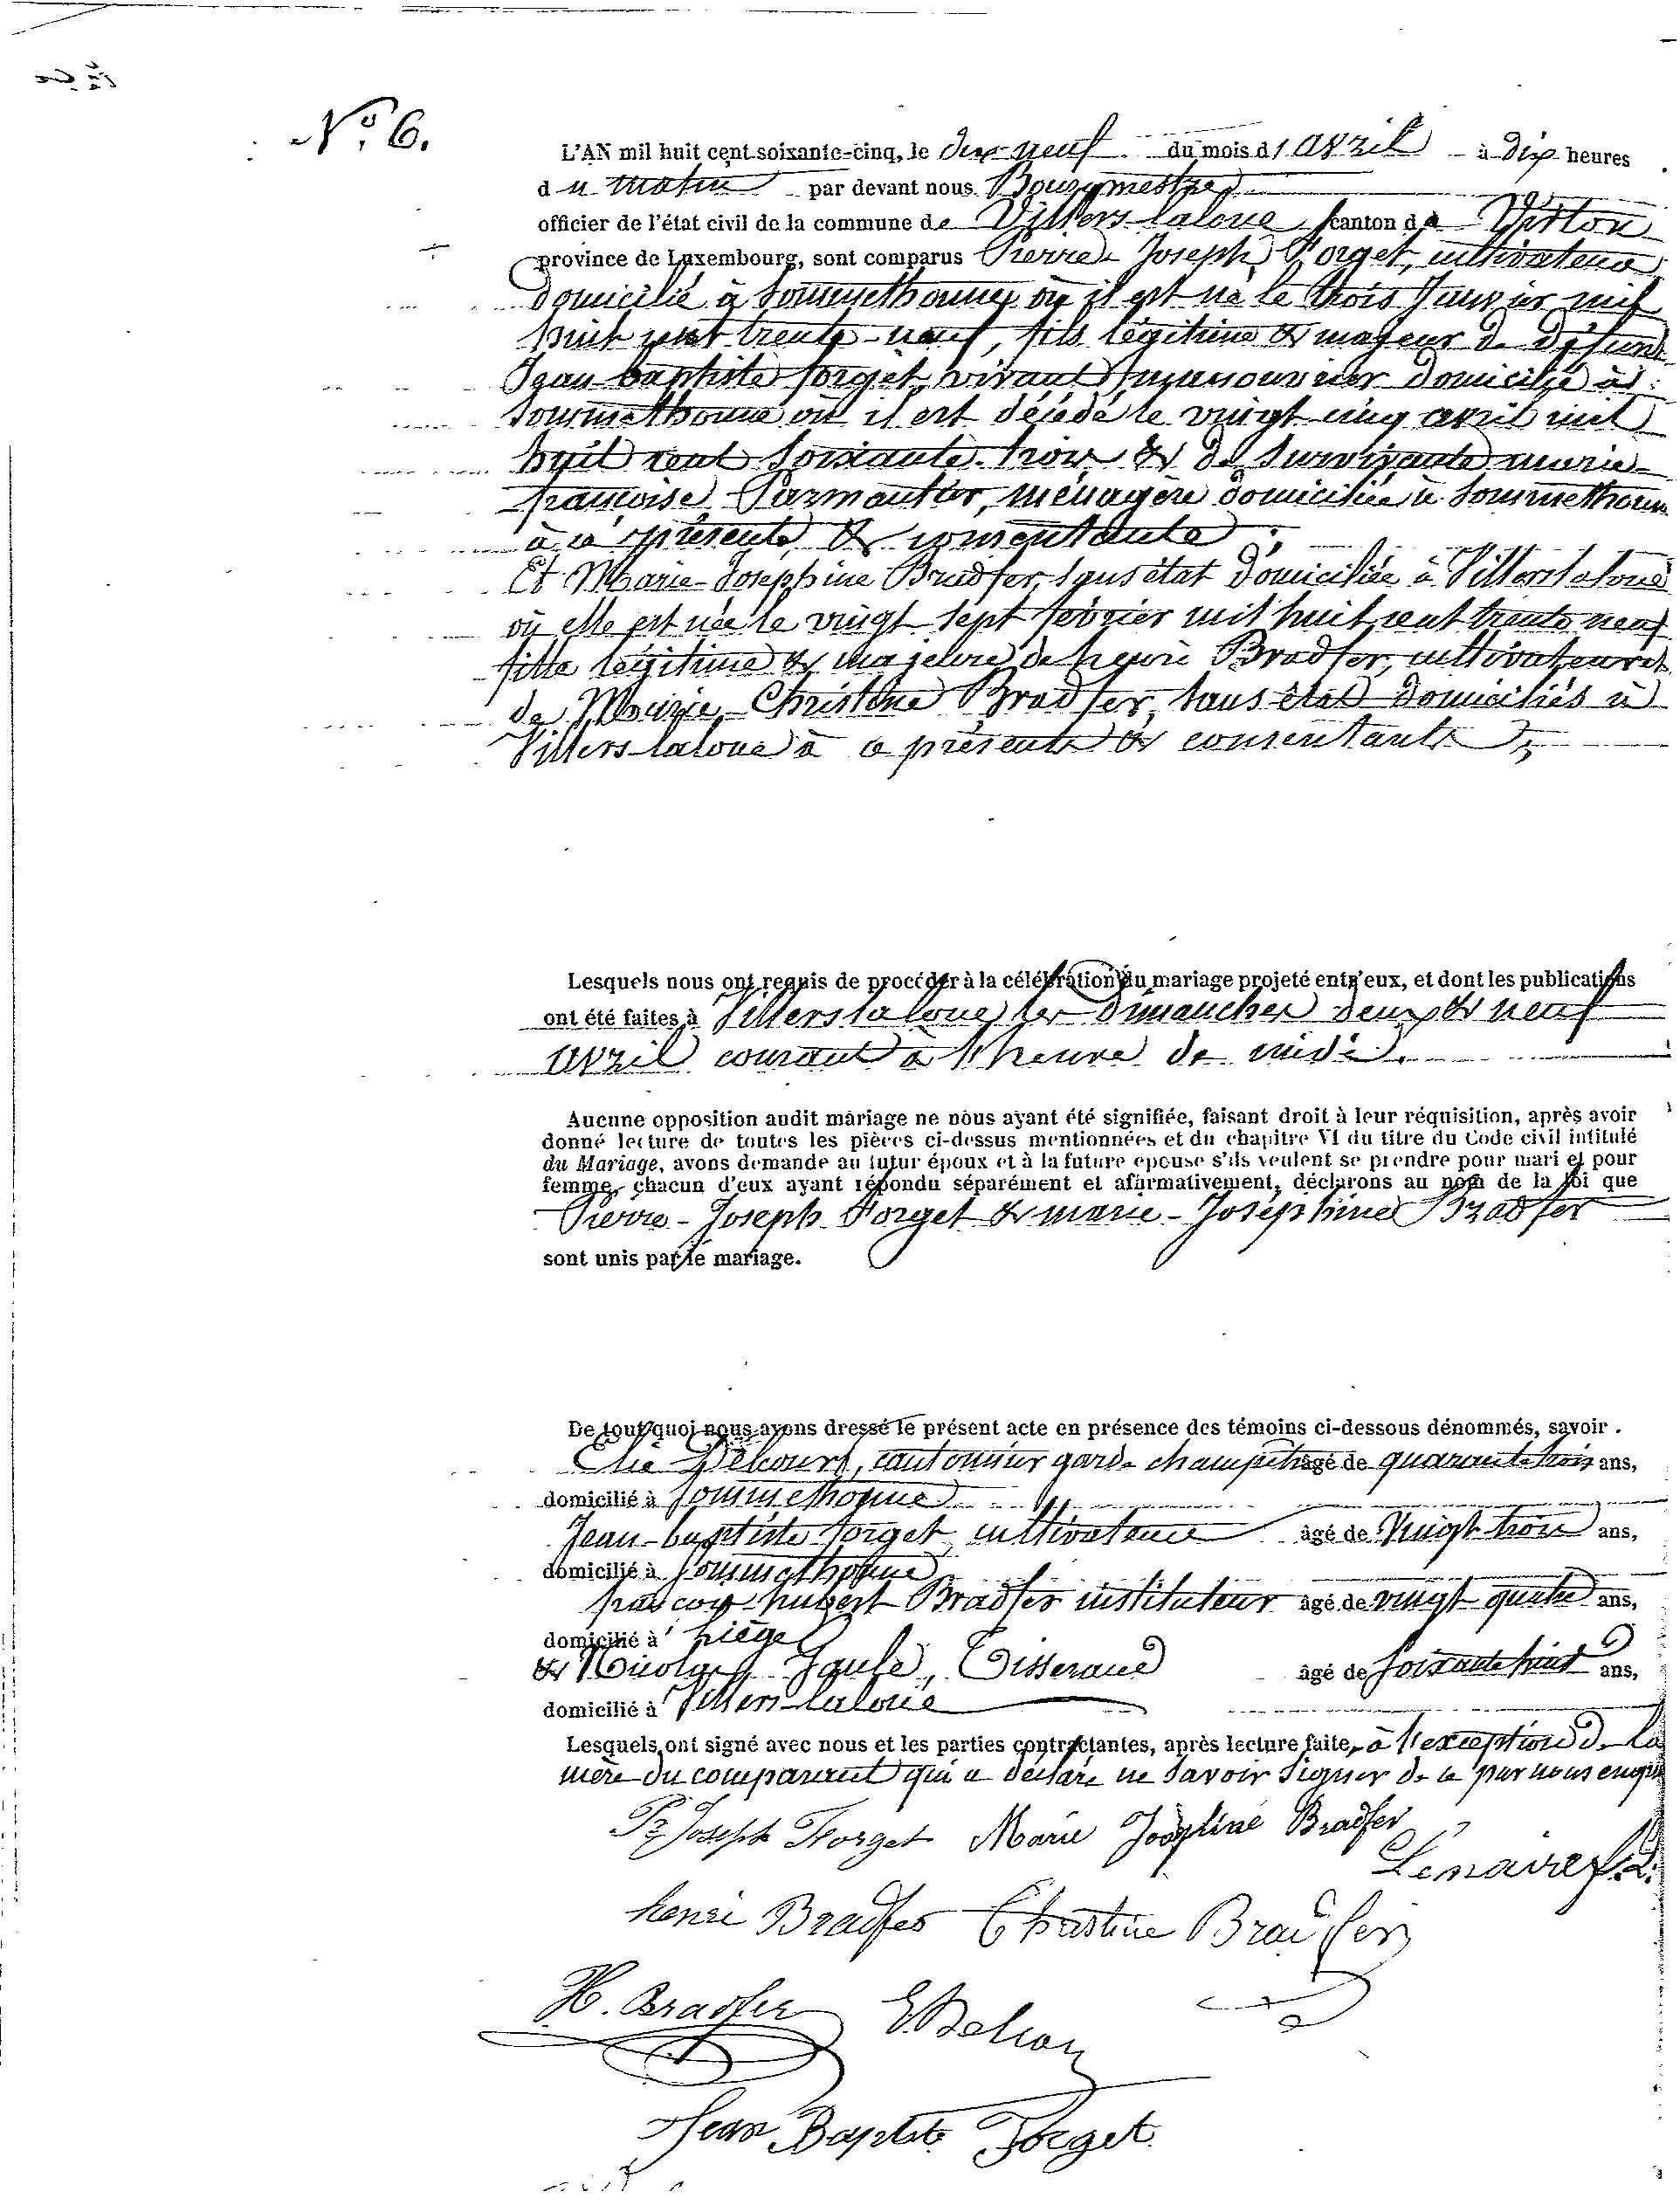 N° 6.
L'AN mil huit cent soixante-cinq, le dix-neuf du mois d'avril à dix heures
du matin par devant nous Bourgmestre
officier de l'état civil de la commune de Villers-laloue canton de Virton
province de Luxembourg, sont comparus Pierre-Joseph Forget, cultivateur
domicilié à Sommethonne où il est né le trois Janvier mil
huit cent trente-neuf, fils légitime & majeur de défunt
Jean-baptiste forget, vivant manouvrier domicilié à
Sommethonne où il est décédé le vingt cinq avril mil
huit cent soixante-trois & de survivante marie-
françoise Parmantier, ménagère domiciliée à Sommethonne
à ce présente & consentante ;
Et Marie-Joséphine Bradfer, sans état domiciliée à Villerslaloue
où elle est née le vingt sept février mil huit cent trente neuf
fille légitime & majeure de henri Bradfer, cultivateur &
de Marie-Christine Bradfer, sans état domiciliés à
Villers laloue à ce présents & consentants ;
Lesquels nous ont requis de procéder à la célébration du mariage projeté entr'eux, et dont les publications
ont été faites à Villerslaloue les dimanches deux & neuf
avril courant à l'heure de midi.
Aucune opposition audit mariage ne nous ayant été signifiée, faisant droit à leur réquisition, après avoir
donné lecture de toutes les pièces ci-dessus mentionnées et du chapitre VI du titre du Code civil intitulé
du Mariage, avons demande au futur époux et à la future epouse s'ils veulent se prendre pour mari et pour
femme, chacun d'eux ayant répondu séparément et affirmativement, déclarons au nom de la loi que
Pierre-Joseph Forget & marie-Joséphine Bradfer
sont unis par le mariage.
De tout quoi nous avons dressé le présent acte en présence des témoins ci-dessous dénommés, savoir.
Elie cantonnier garde champêtre âgé de quarante trois ans,
domicilié à Sommethonne
Jean-baptiste forget cultivateur âgé de vingt trois ans,
domicilié à Sommethonne
hubert Bradfer instituteur âgé de vingt quatre ans,
domicilié à Liège
& Nicolas Tisserand âgé de soixante huit ans,
domicilié à Villers-laloue
Lesquels ont signé avec nous et les parties contractantes, après lecture faite, à l'exception de la
mère du comparant qui a déclaré ne savoir signer de ce par nous enquis
Pr Joseph Forget Marie Joséphine Bradfer
henri Bradfer Christine Bradfer
H. Bradfer
Jean Baptiste Forget